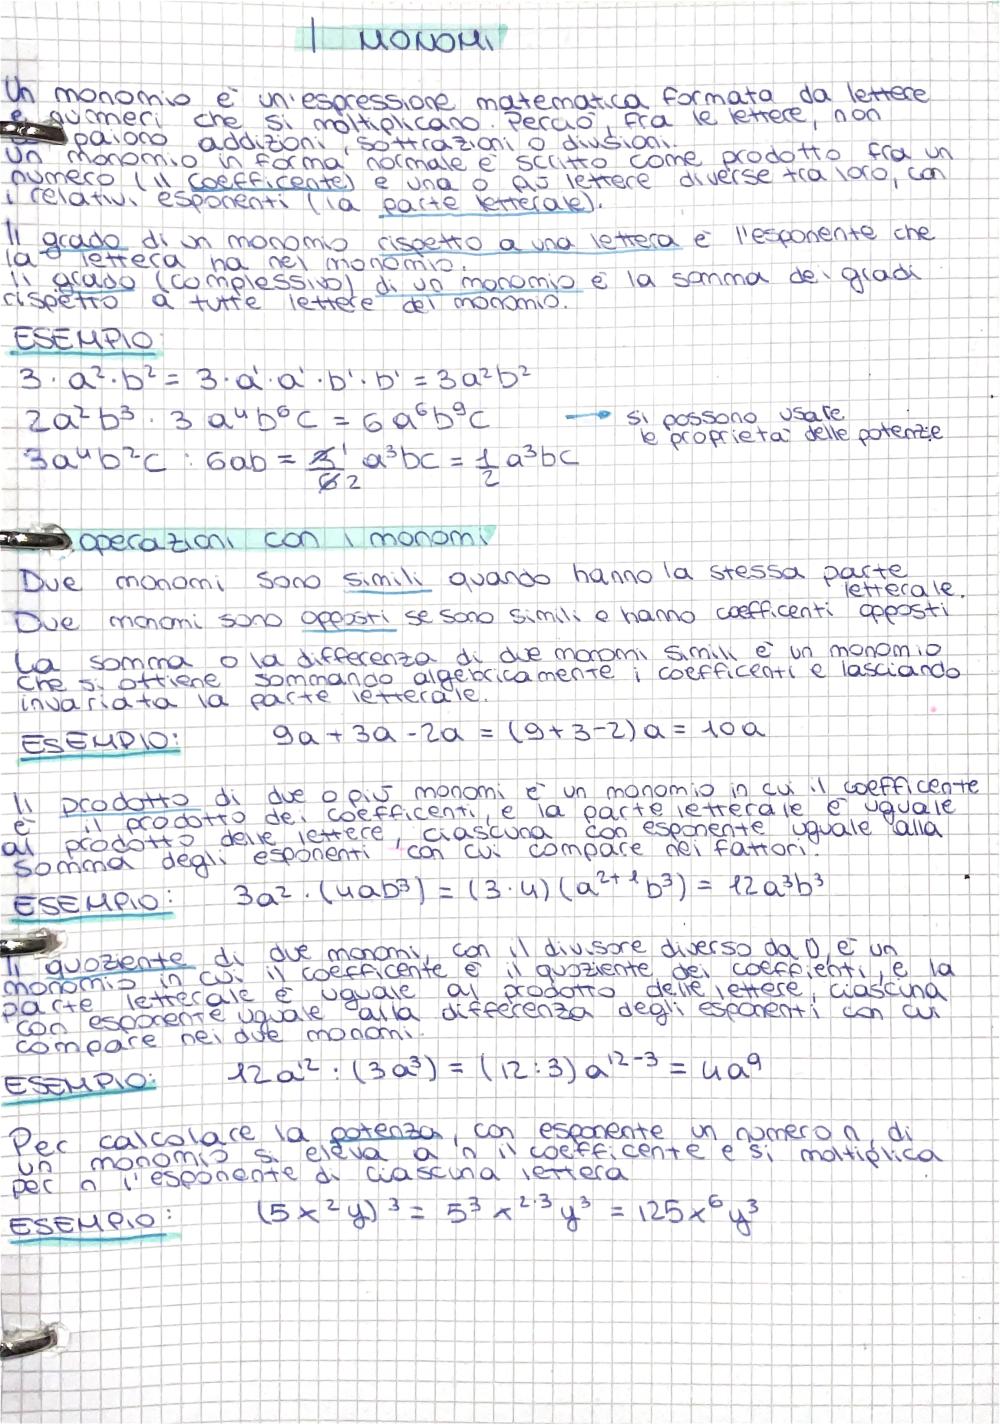 I MONOMI
Un monomio è un'espressione matematica formata da lettere
e numeri che si moltiplicano. Perciò, fra le lettere, non
paiono addizioni, sottrazioni o divisioni.
Un monomio in forma normale è scritto come prodotto fra un
numero (il coefficente) e una o più lettere diverse tra loro, con
i relativi esponenti (la parte letterale).
Il grado di un monomio rispetto a una lettera è l'esponente che
la lettera ha nel monomio.
Il grado (complessivo) di un monomio è la somma dei gradi
rispetto a tutte lettere del monomio.
ESEMPIO:
3 · a² · b² = 3 · a¹ · a¹ · b¹ · b¹ = 3a²b²
2a²b³ · 3 a⁴b⁶c = 6a⁶b⁹c → si possono usare
le proprietà delle potenze
3a⁴b²c : 6ab = 3¹/6₂ a³bc = 1/2 a³bc
operazioni con i monomi
Due monomi sono simili quando hanno la stessa parte
letterale.
Due monomi sono opposti se sono simili e hanno coefficenti opposti
La somma o la differenza di due monomi simili è un monomio
che si ottiene sommando algebricamente i coefficenti e lasciando
invariata la parte letterale.
ESEMPIO: 9a + 3a - 2a = (9+3-2)a = 10a
Il prodotto di due o più monomi è un monomio in cui il coefficente
è il prodotto dei coefficenti, e la parte letterale è uguale
al prodotto delle lettere, ciascuna con esponente uguale alla
somma degli esponenti con cui compare nei fattori.
ESEMPIO: 3a² · (4ab³) = (3·4)(a²⁺¹b³) = 12a³b³
Il quoziente di due monomi, con il divisore diverso da 0, è un
monomio in cui il coefficente è il quoziente dei coeffienti, e la
parte letterale è uguale al prodotto delle lettere, ciascuna
con esponente uguale alla differenza degli esponenti con cui
compare nei due monomi.
ESEMPIO: 12a¹² : (3a³) = (12:3) a¹²⁻³ = 4a⁹
Per calcolare la potenza, con esponente un numero n, di
un monomio si eleva a n il coefficente e si moltiplica
per n l'esponente di ciascuna lettera
ESEMPIO: (5x²y)³ = 5³x²·³y³ = 125x⁶y³